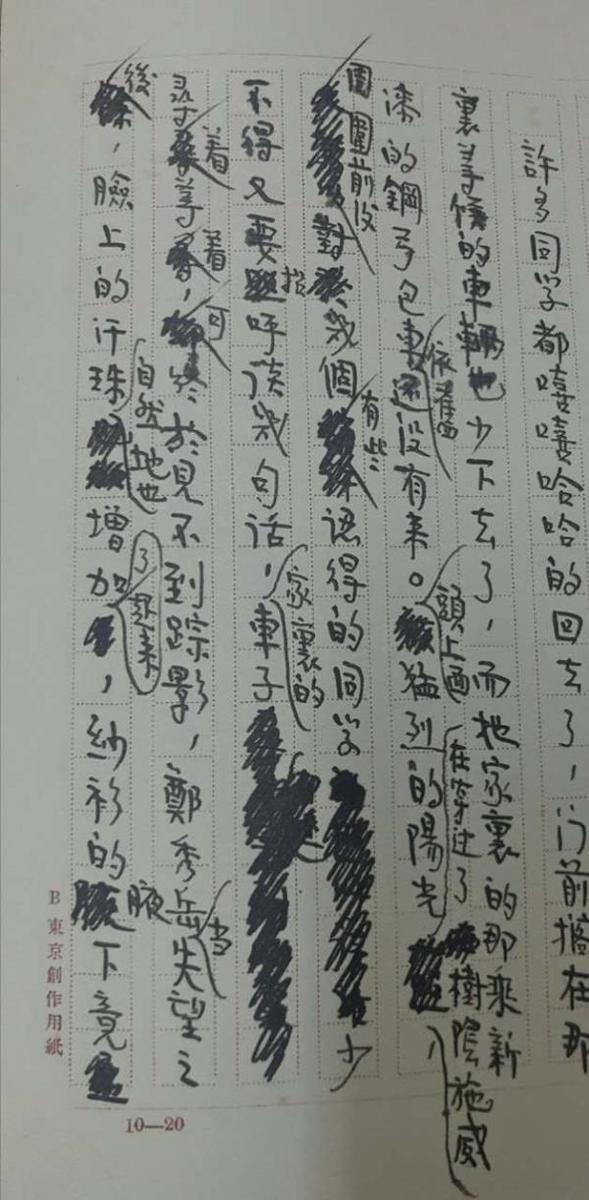 許多同学都嘻嘻哈哈的回去了，门前擱在那
裏等候的車輛也少下去了，而她家裏的那乘新
漆的鋼弓包車依舊还没有来。頭上面猛烈的陽光在穿过了樹陰施威，
圍前後對幾個有些認得的同学少
不得又要招呼谈幾句话，家裏的車子
寻着等着，可終於見不到踪影，鄭秀岳当失望之
後，臉上的汗珠自然地也增加了起来，紗衫的腋下竟
B 東京創作用紙
10—20